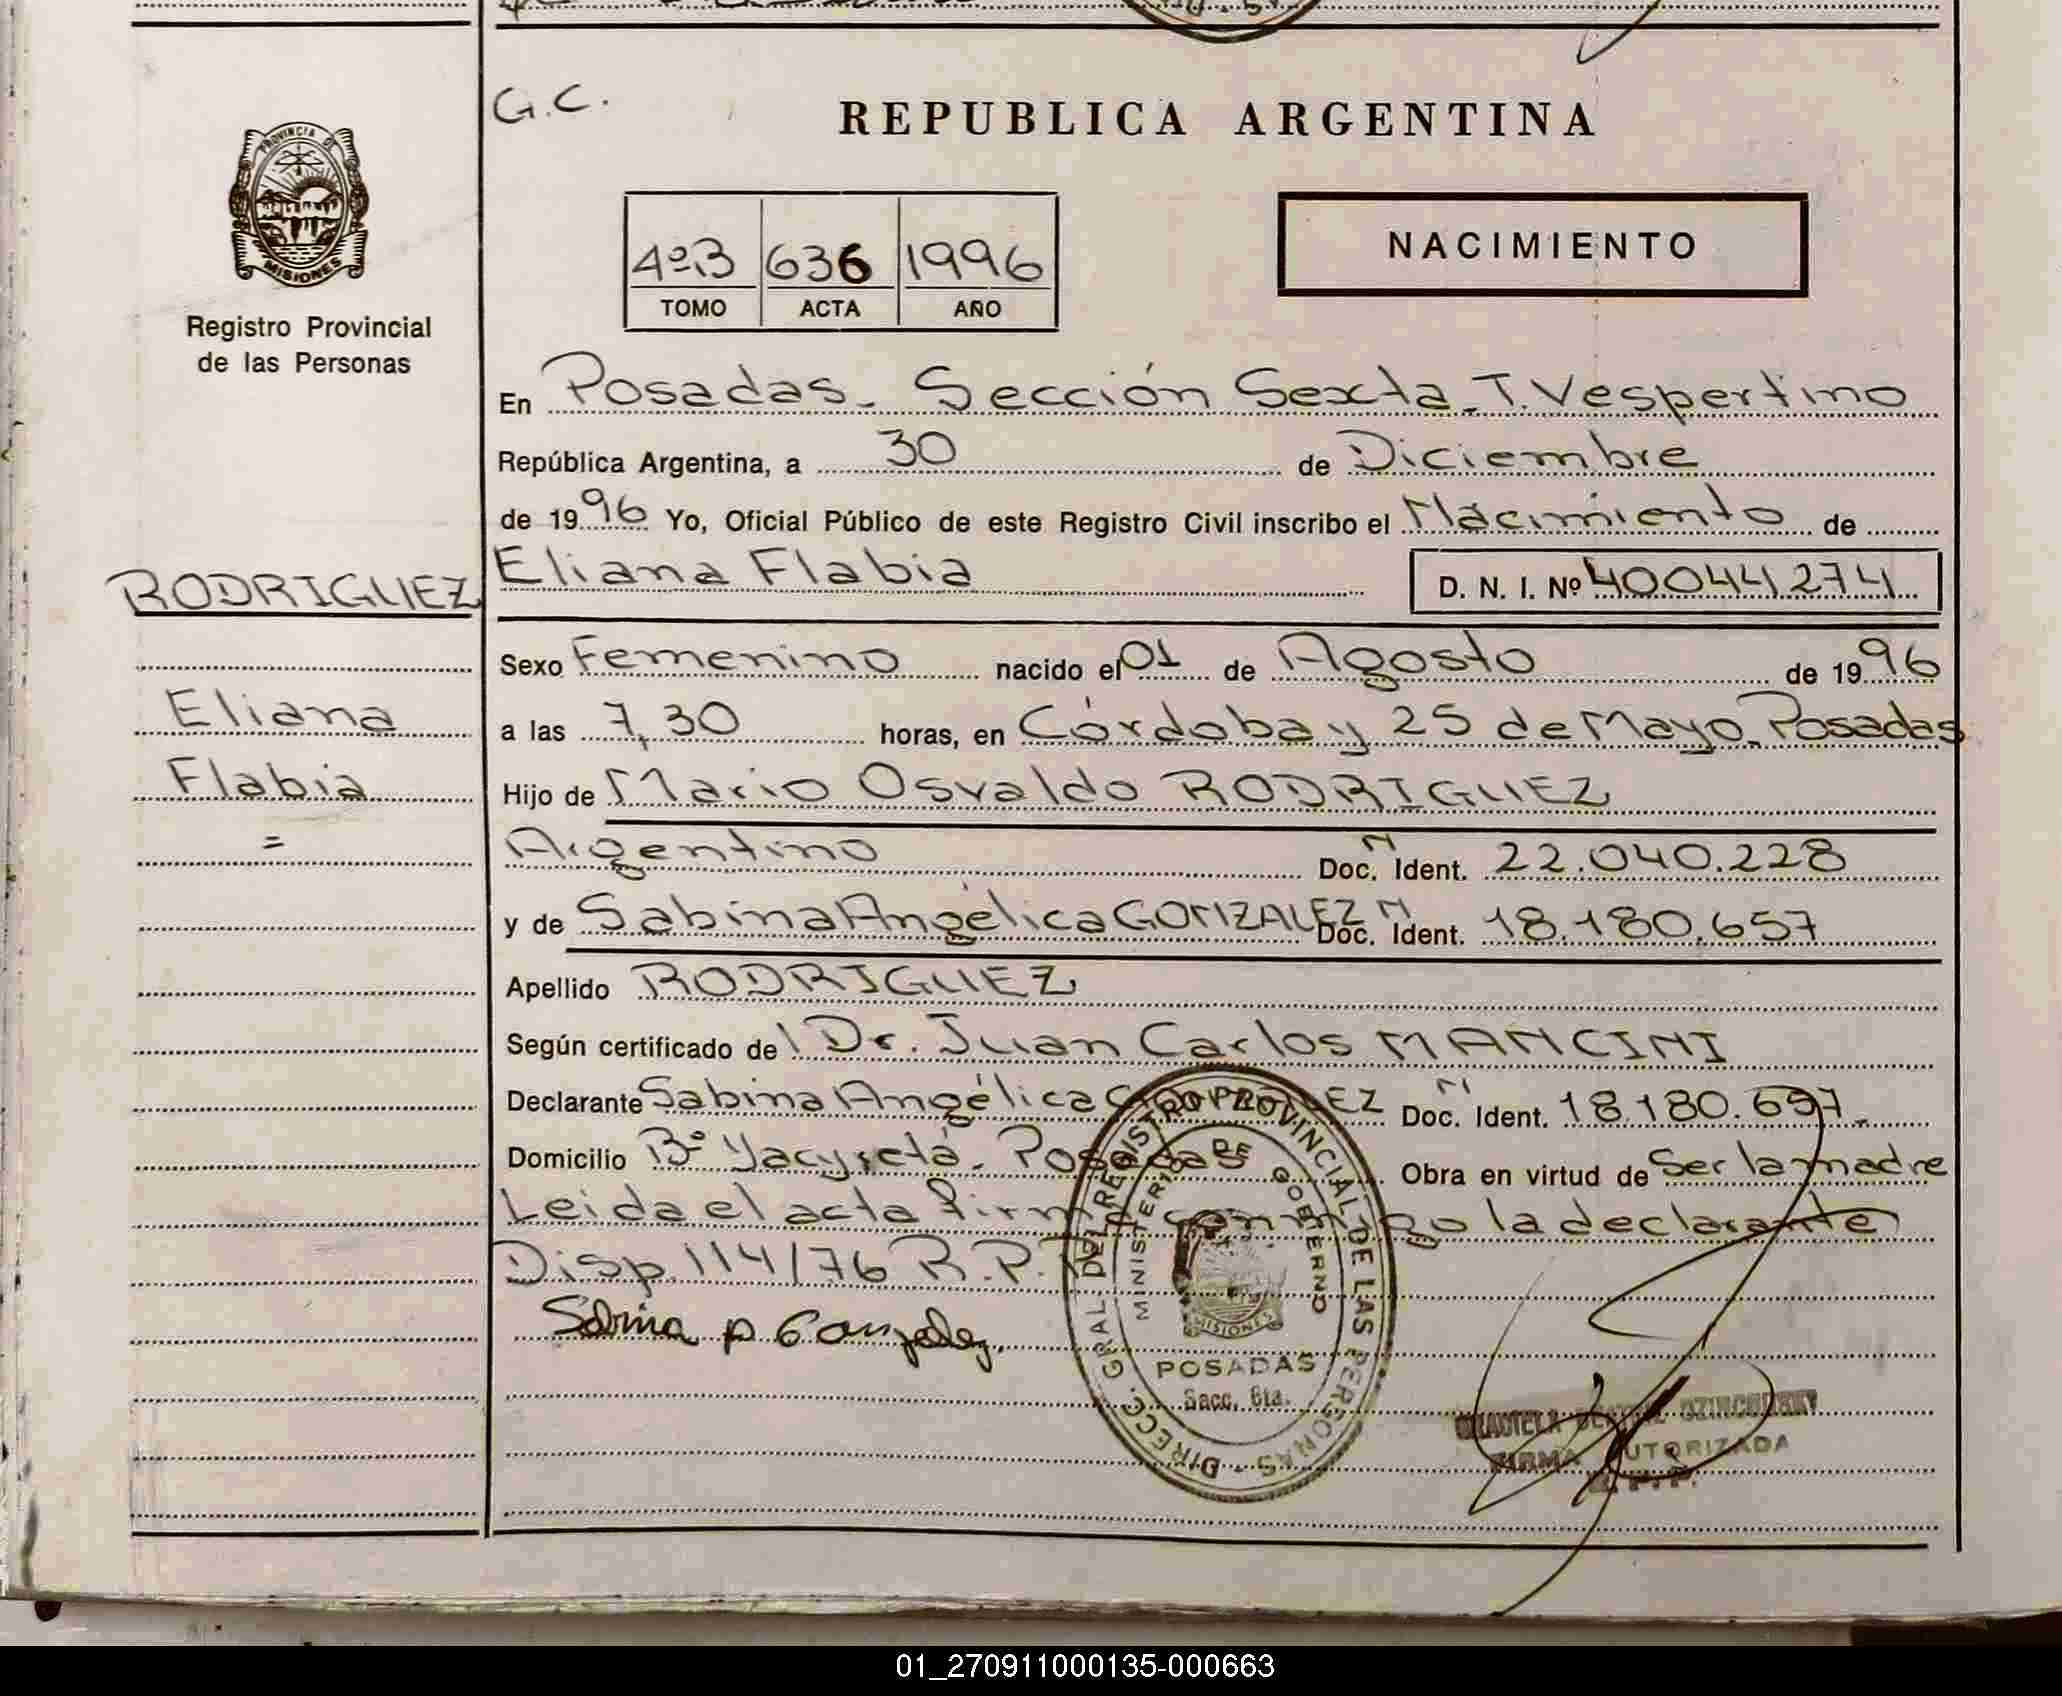 G.C.
REPUBLICA ARGENTINA
PROVINCIA DE
MISIONES
Registro Provincial
de las Personas
4ºB 636 1996
TOMO ACTA AÑO
NACIMIENTO
En Posadas. Sección Sexta. T. Vespertino
República Argentina, a 30 de Diciembre
de 1996 Yo, Oficial Público de este Registro Civil inscribo el Nacimiento de
RODRIGUEZ
Eliana Flabia D. N. I. Nº 40044274
Sexo Femenino nacido el 01 de Agosto de 1996
Eliana
a las 7,30 horas, en Córdoba y 25 de Mayo. Posadas
Flabia
Hijo de Mario Osvaldo RODRIGUEZ
=
Argentino Doc. N Ident. 22.040.228
y de Sabina Angélica GONZALEZ Doc. N Ident. 18.180.657
Apellido RODRIGUEZ
Según certificado del Dr. Juan Carlos MANCINI
Declarante Sabina Angélica GONZALEZ Doc. N Ident. 18.180.657.
Domicilio Bº Yacyretá. Posadas Obra en virtud de Ser la madre
Leida el acta firma conmigo la declarante
Disp. 114/76 R.P.P.
Sabina A Gonzalez.
DIRECC. GRAL DEL REGISTRO PROVINCIAL DE LAS PERSONAS
MINISTERIO DE GOBIERNO
MISIONES
POSADAS
Secc. 6ta.
FIRMA AUTORIZADA
R.P.P.
01_270911000135-000663